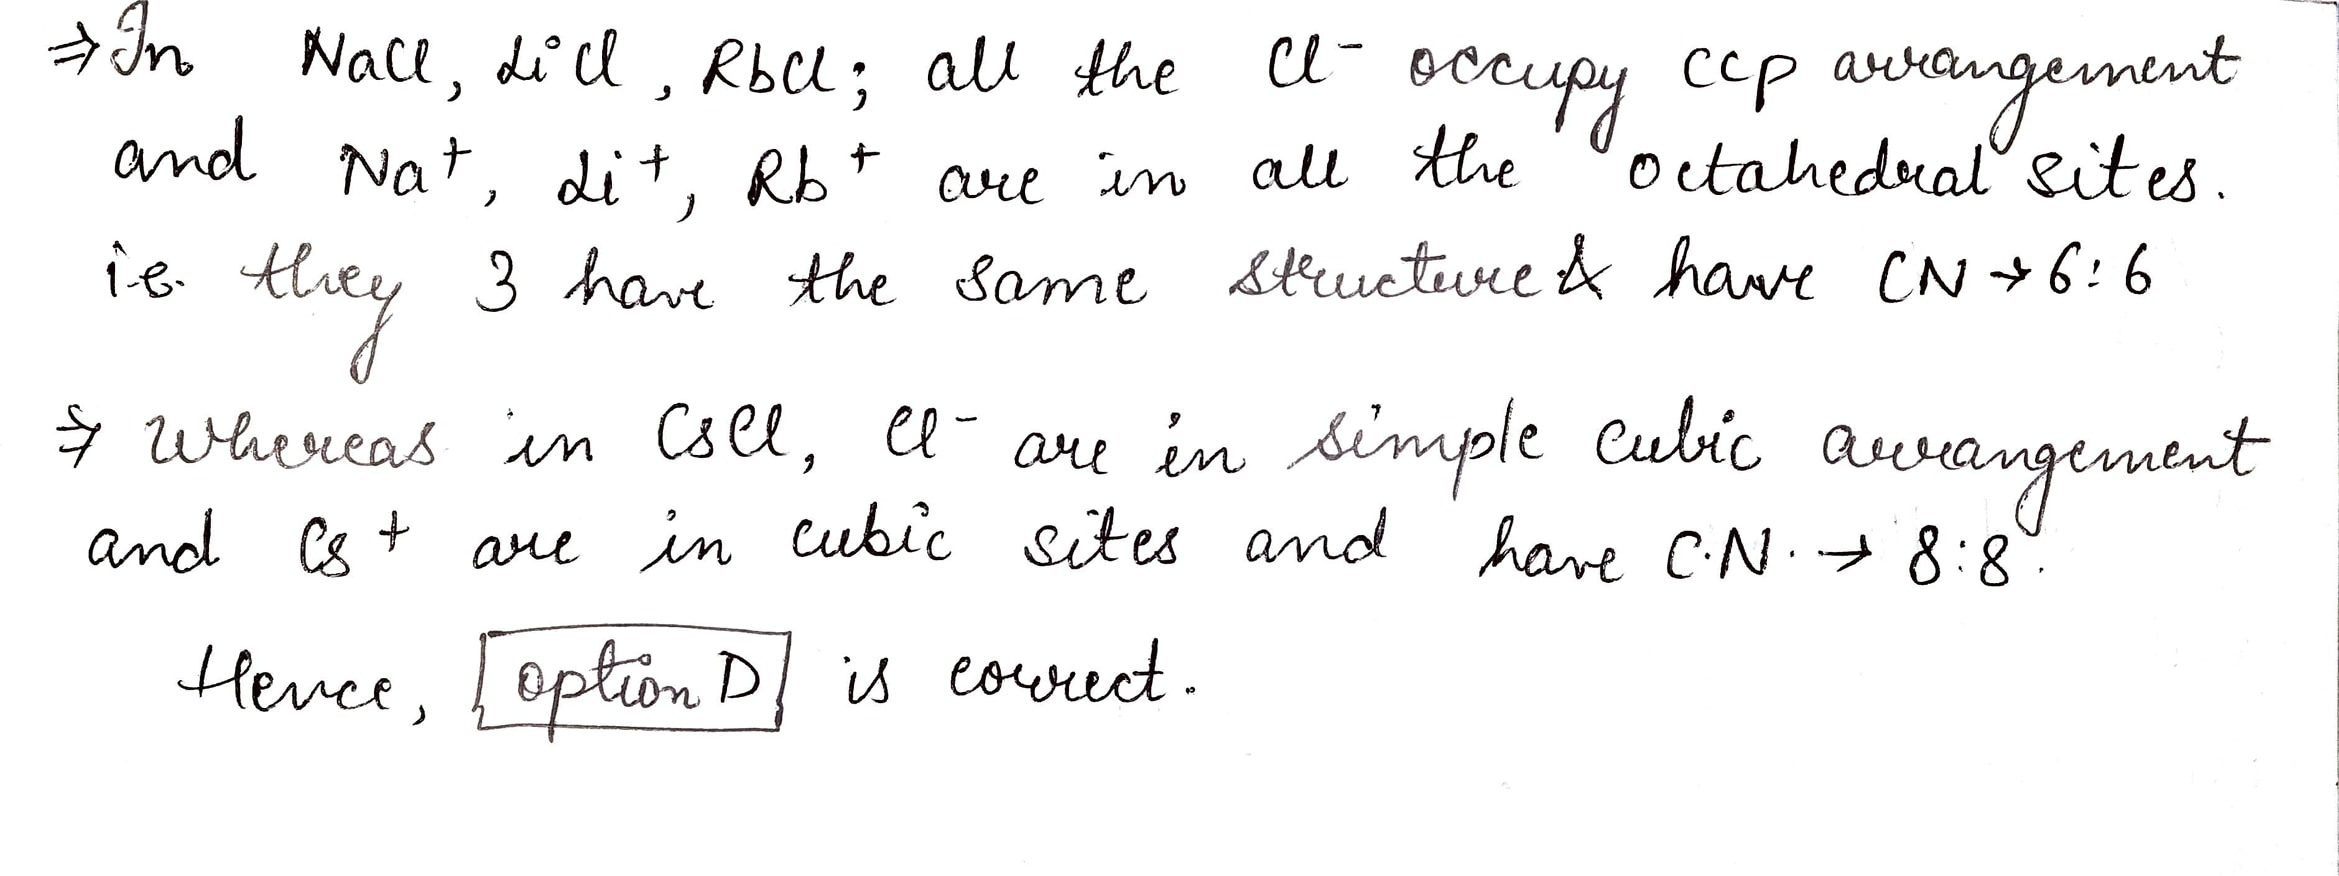 ⇒ In NaCl, LiCl, RbCl; all the Cl⁻ occupy ccp arrangement
and Na⁺, Li⁺, Rb⁺ are in all the octahedral sites.
i.e. they 3 have the same structure & have CN → 6:6
⇒ Whereas in CsCl, Cl⁻ are in simple cubic arrangement
and Cs⁺ are in cubic sites and have C.N. → 8:8.
Hence, option D is correct.